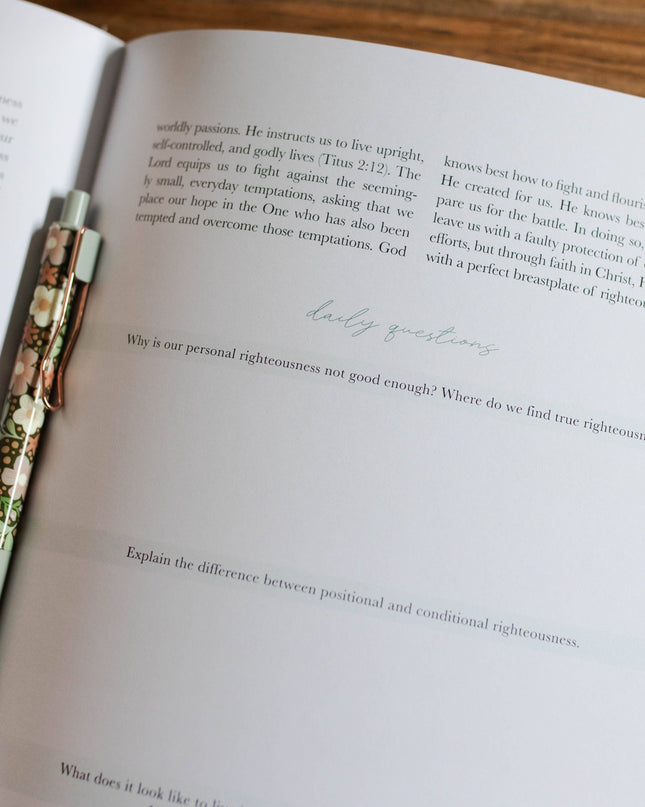 ness
we
worldly passions. He instructs us to live upright,
self-controlled, and godly lives (Titus 2:12). The
Lord equips us to fight against the seeming-
ly small, everyday temptations, asking that we
place our hope in the One who has also been
tempted and overcome those temptations. God
knows best how to fight and
He created for us. He knows
pare us for the battle. In doing so,
leave us with a faulty protection of
efforts, but through faith in Christ,
with a perfect breastplate of
daily questions
Why is our personal righteousness not good enough? Where do we find true
Explain the difference between positional and conditional righteousness.
What does it look like to